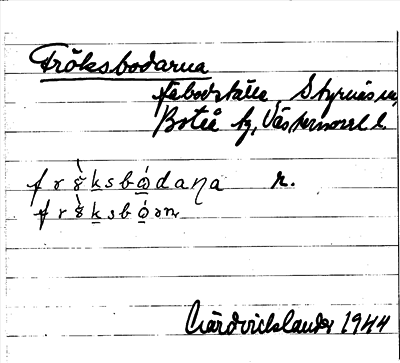 Fröksbodarna
fäbodställe, Styrnäs sn,
Boteå tg, Västernorrl. l.
frö̀ksbọ́daṇa r.
frö̀ksbọ́ʒn
Gärdvicklander 1944